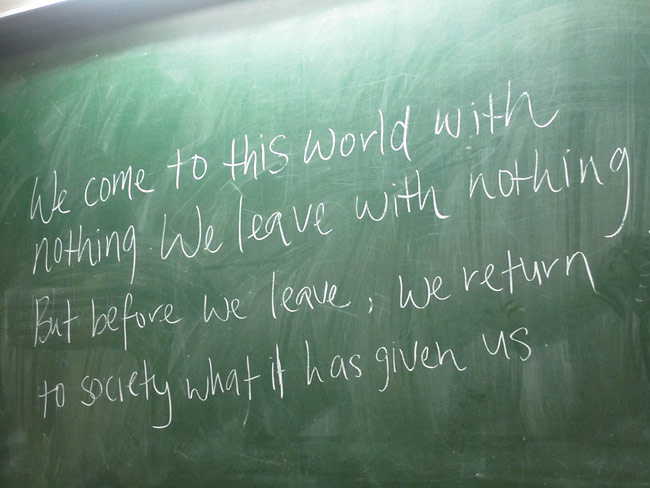 We come to this world with
nothing. We leave with nothing.
But before we leave, we return
to society what it has given us.